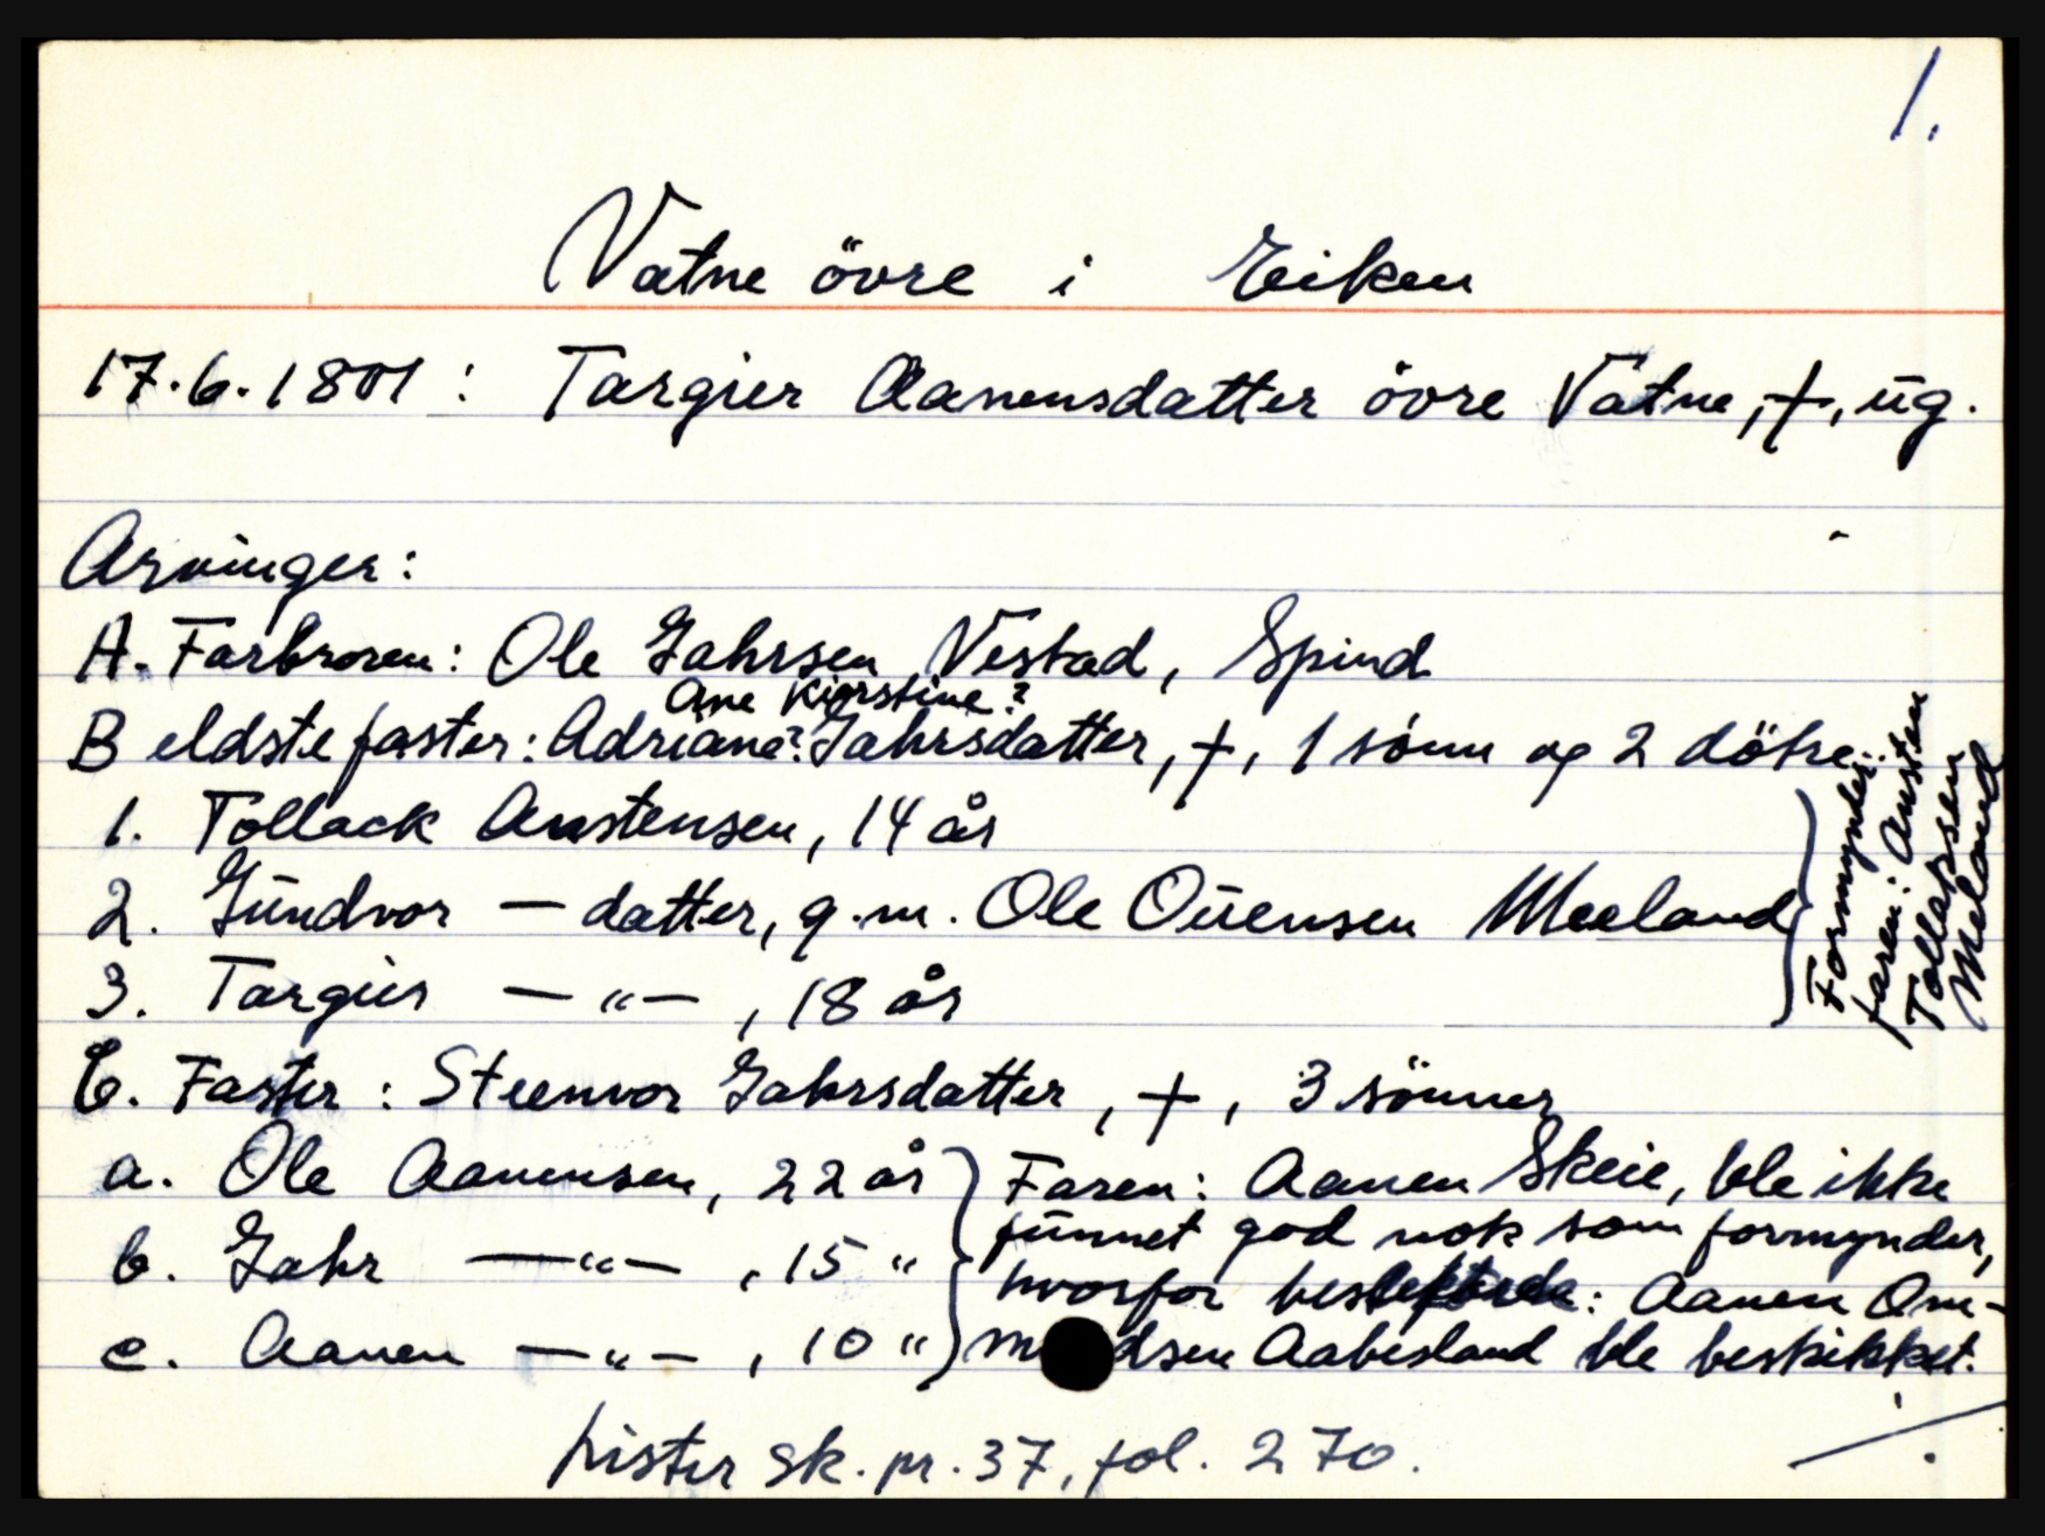 1.
Vatne övre i Eiken
17.6.1801: Targier Aanensdatter övre Vatne, +, ug.
Arvinger:
A. Farbroren: Ole Gahrsen Vestad, Spind
Ane Kirstine?
B eldste faster: Adriane? Gahrsdatter, +, 1 sönn og 2 dötre:
1. Tollack Anstensen, 14 år
2. Gundvor — datter, g.m. Ole Ouensen Meeland
3. Targier — " — , 18 år
Formynder:
faren: Ansten
Tollaksen
Meland
C. Faster: Steenvor Gahrsdatter, +, 3 sönner
a. Ole Aanensen, 22 år
b. Gahr — " — , 15 "
c. Aanen — " — , 10 "
Faren: Aanen Skeie, ble ikke
funnet god nok som formynder,
hvorfor : Aanen Om-
m dsen Aabesland ble beskikket.
Lister sk. pr. 37, fol. 270.